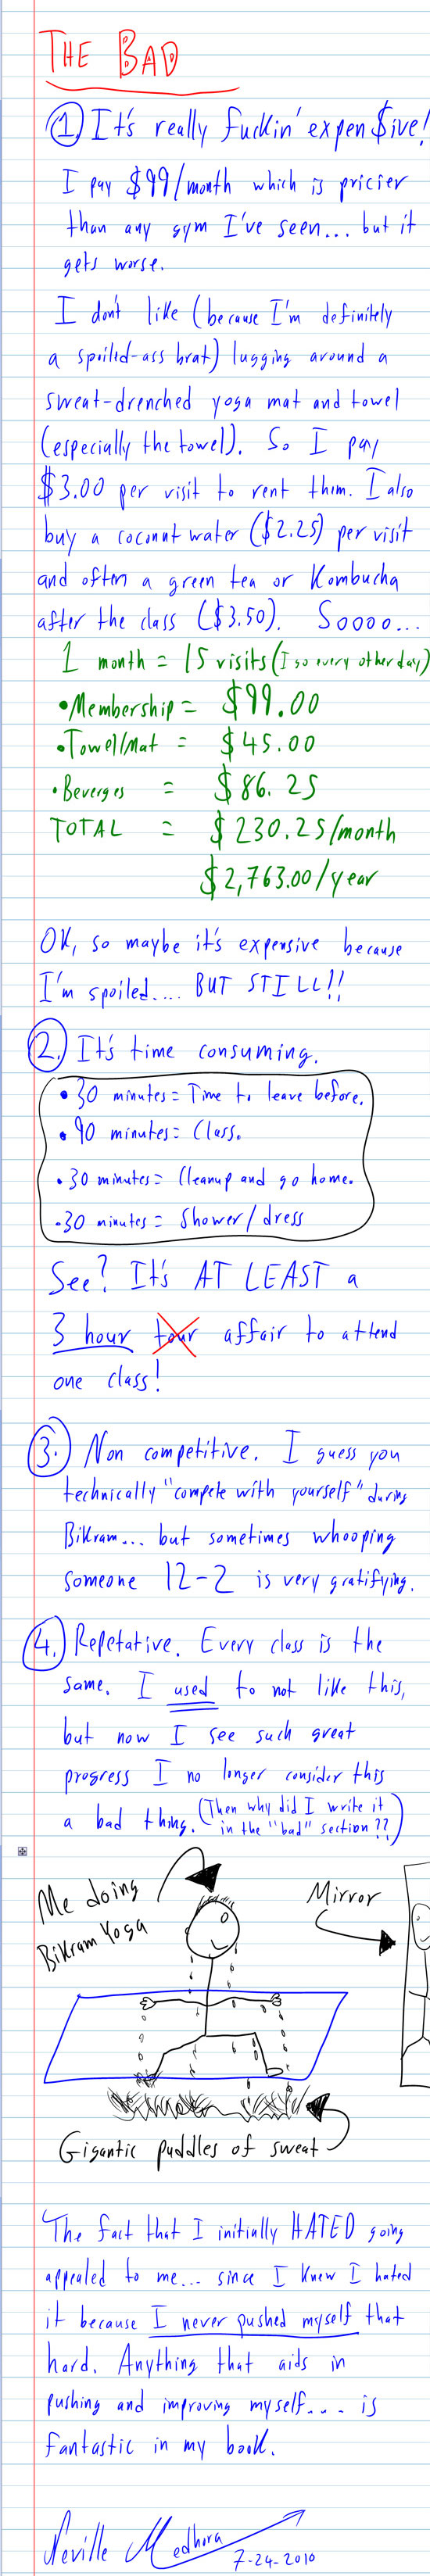 THE BAD
1. It's really fuckin' expen$ive!
I pay $99/month which is pricier
than any gym I've seen... but it
gets worse.
I don't like (because I'm definitely
a spoiled-ass brat) lugging around a
sweat-drenched yoga mat and towel
(especially the towel). So I pay
$3.00 per visit to rent them. I also
buy a coconut water ($2.25) per visit
and often a green tea or Kombucha
after the class ($3.50). Soooo...
1 month = 15 visits (I go every other day)
•Membership = $99.00
•Towel/Mat = $45.00
•Beverges = $86.25
TOTAL = $230.25/month
$2,763.00/year
OK, so maybe it's expensive because
I'm spoiled.... BUT STILL!!
2. It's time consuming.
• 30 minutes = Time to leave before.
• 90 minutes = Class.
• 30 minutes = Cleanup and go home.
• 30 minutes = Shower/dress
See? It's AT LEAST a
3 hour tour affair to attend
one class!
3. Non competitive. I guess you
technically "compete with yourself" during
Bikram... but sometimes whooping
someone 12-2 is very gratifying.
4. Repetative. Every class is the
same. I used to not like this,
but now I see such great
progress I no longer consider this
a bad thing. (Then why did I write it
in the "bad" section??)
Me doing
Bikram Yoga
Mirror
Gigantic puddles of sweat
The fact that I initially HATED going
appealed to me... since I knew I hated
it because I never pushed myself that
hard. Anything that aids in
pushing and improving myself... is
fantastic in my book.
Neville Medhora
7-24-2010